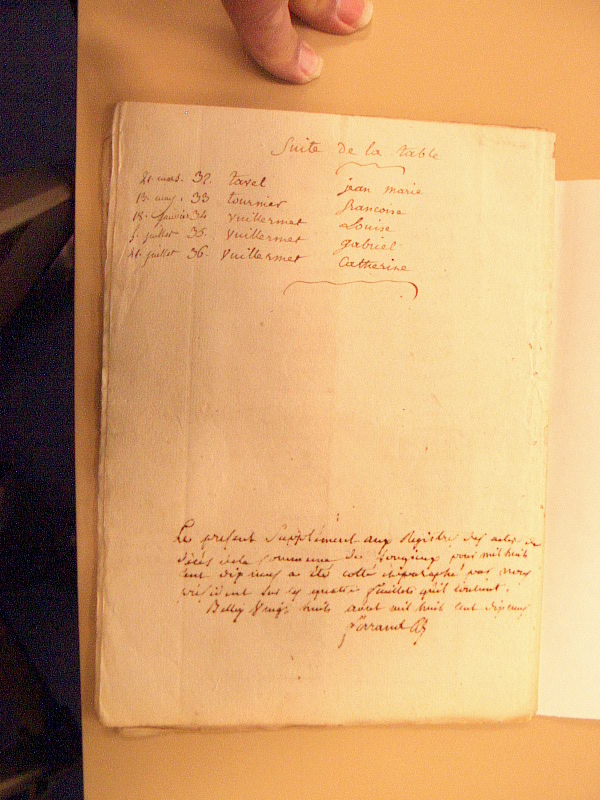 Suite de la table
21. mars. 32. tavel jean marie
13. may. 33 tournier francoise
18. janvier 34 Vuillermet Louise
5. juillet 35. Vuillermet gabriel
21. juillet 36. Vuillermet Catherine
Le présent Supplément aux Registre des actes de
décès de la Commune de pour mil huit
cent dix neuf a été cotté et paraphé par nous
président sur les quatre feuillets qu'il contient.
Belley Vingt huit aout mil huit cent dix neuf
ferrand